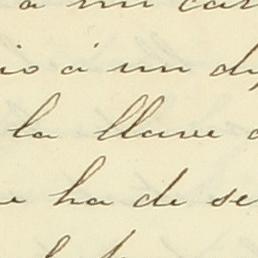 a mi car
io á un dy
la llave d
e ha de se